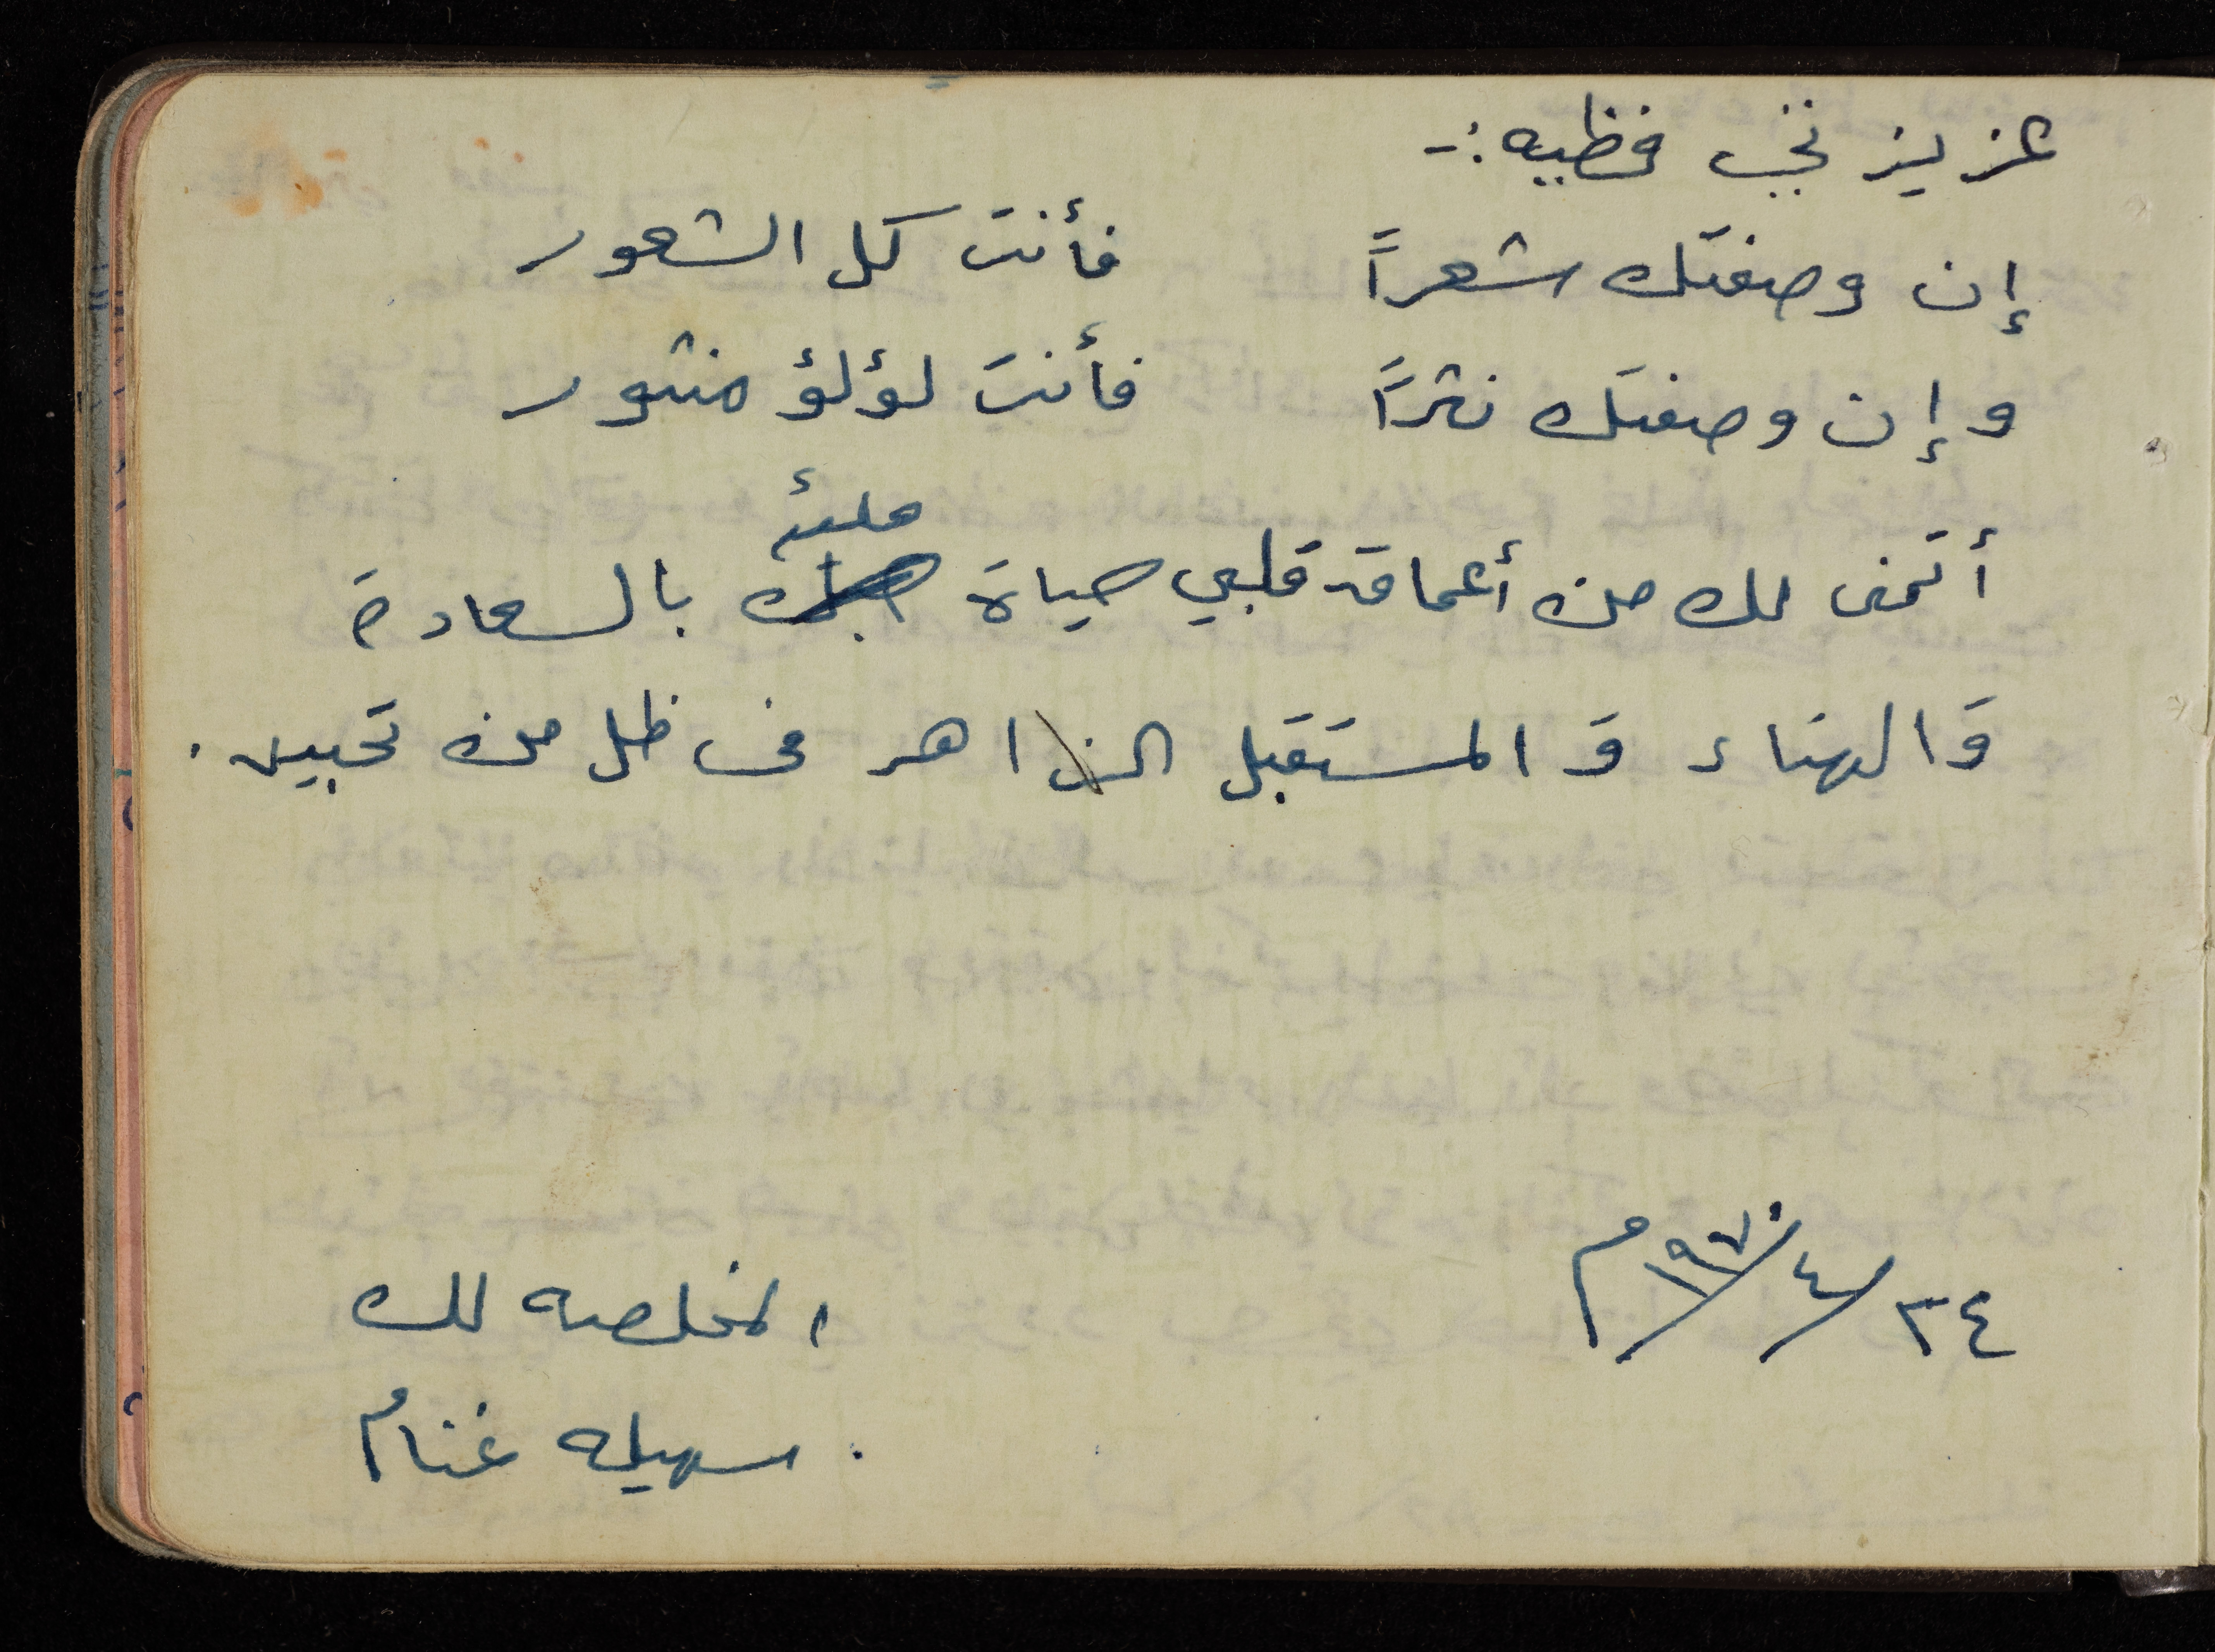 عزيزتي فظيه :-
إن وصفتك شعراً فأنت كل الشعور
وإن وصفتك نثراً فأنت لؤلؤ منثور
أتمنى لك من أعماق قلبي حياة مليئه بالسعادة
وَالهناء وَالمستقبل الزاهر في ظل من تحبين.
٢٤/٤/١٩٧٠م
المخلصه لك
سهيله غنام